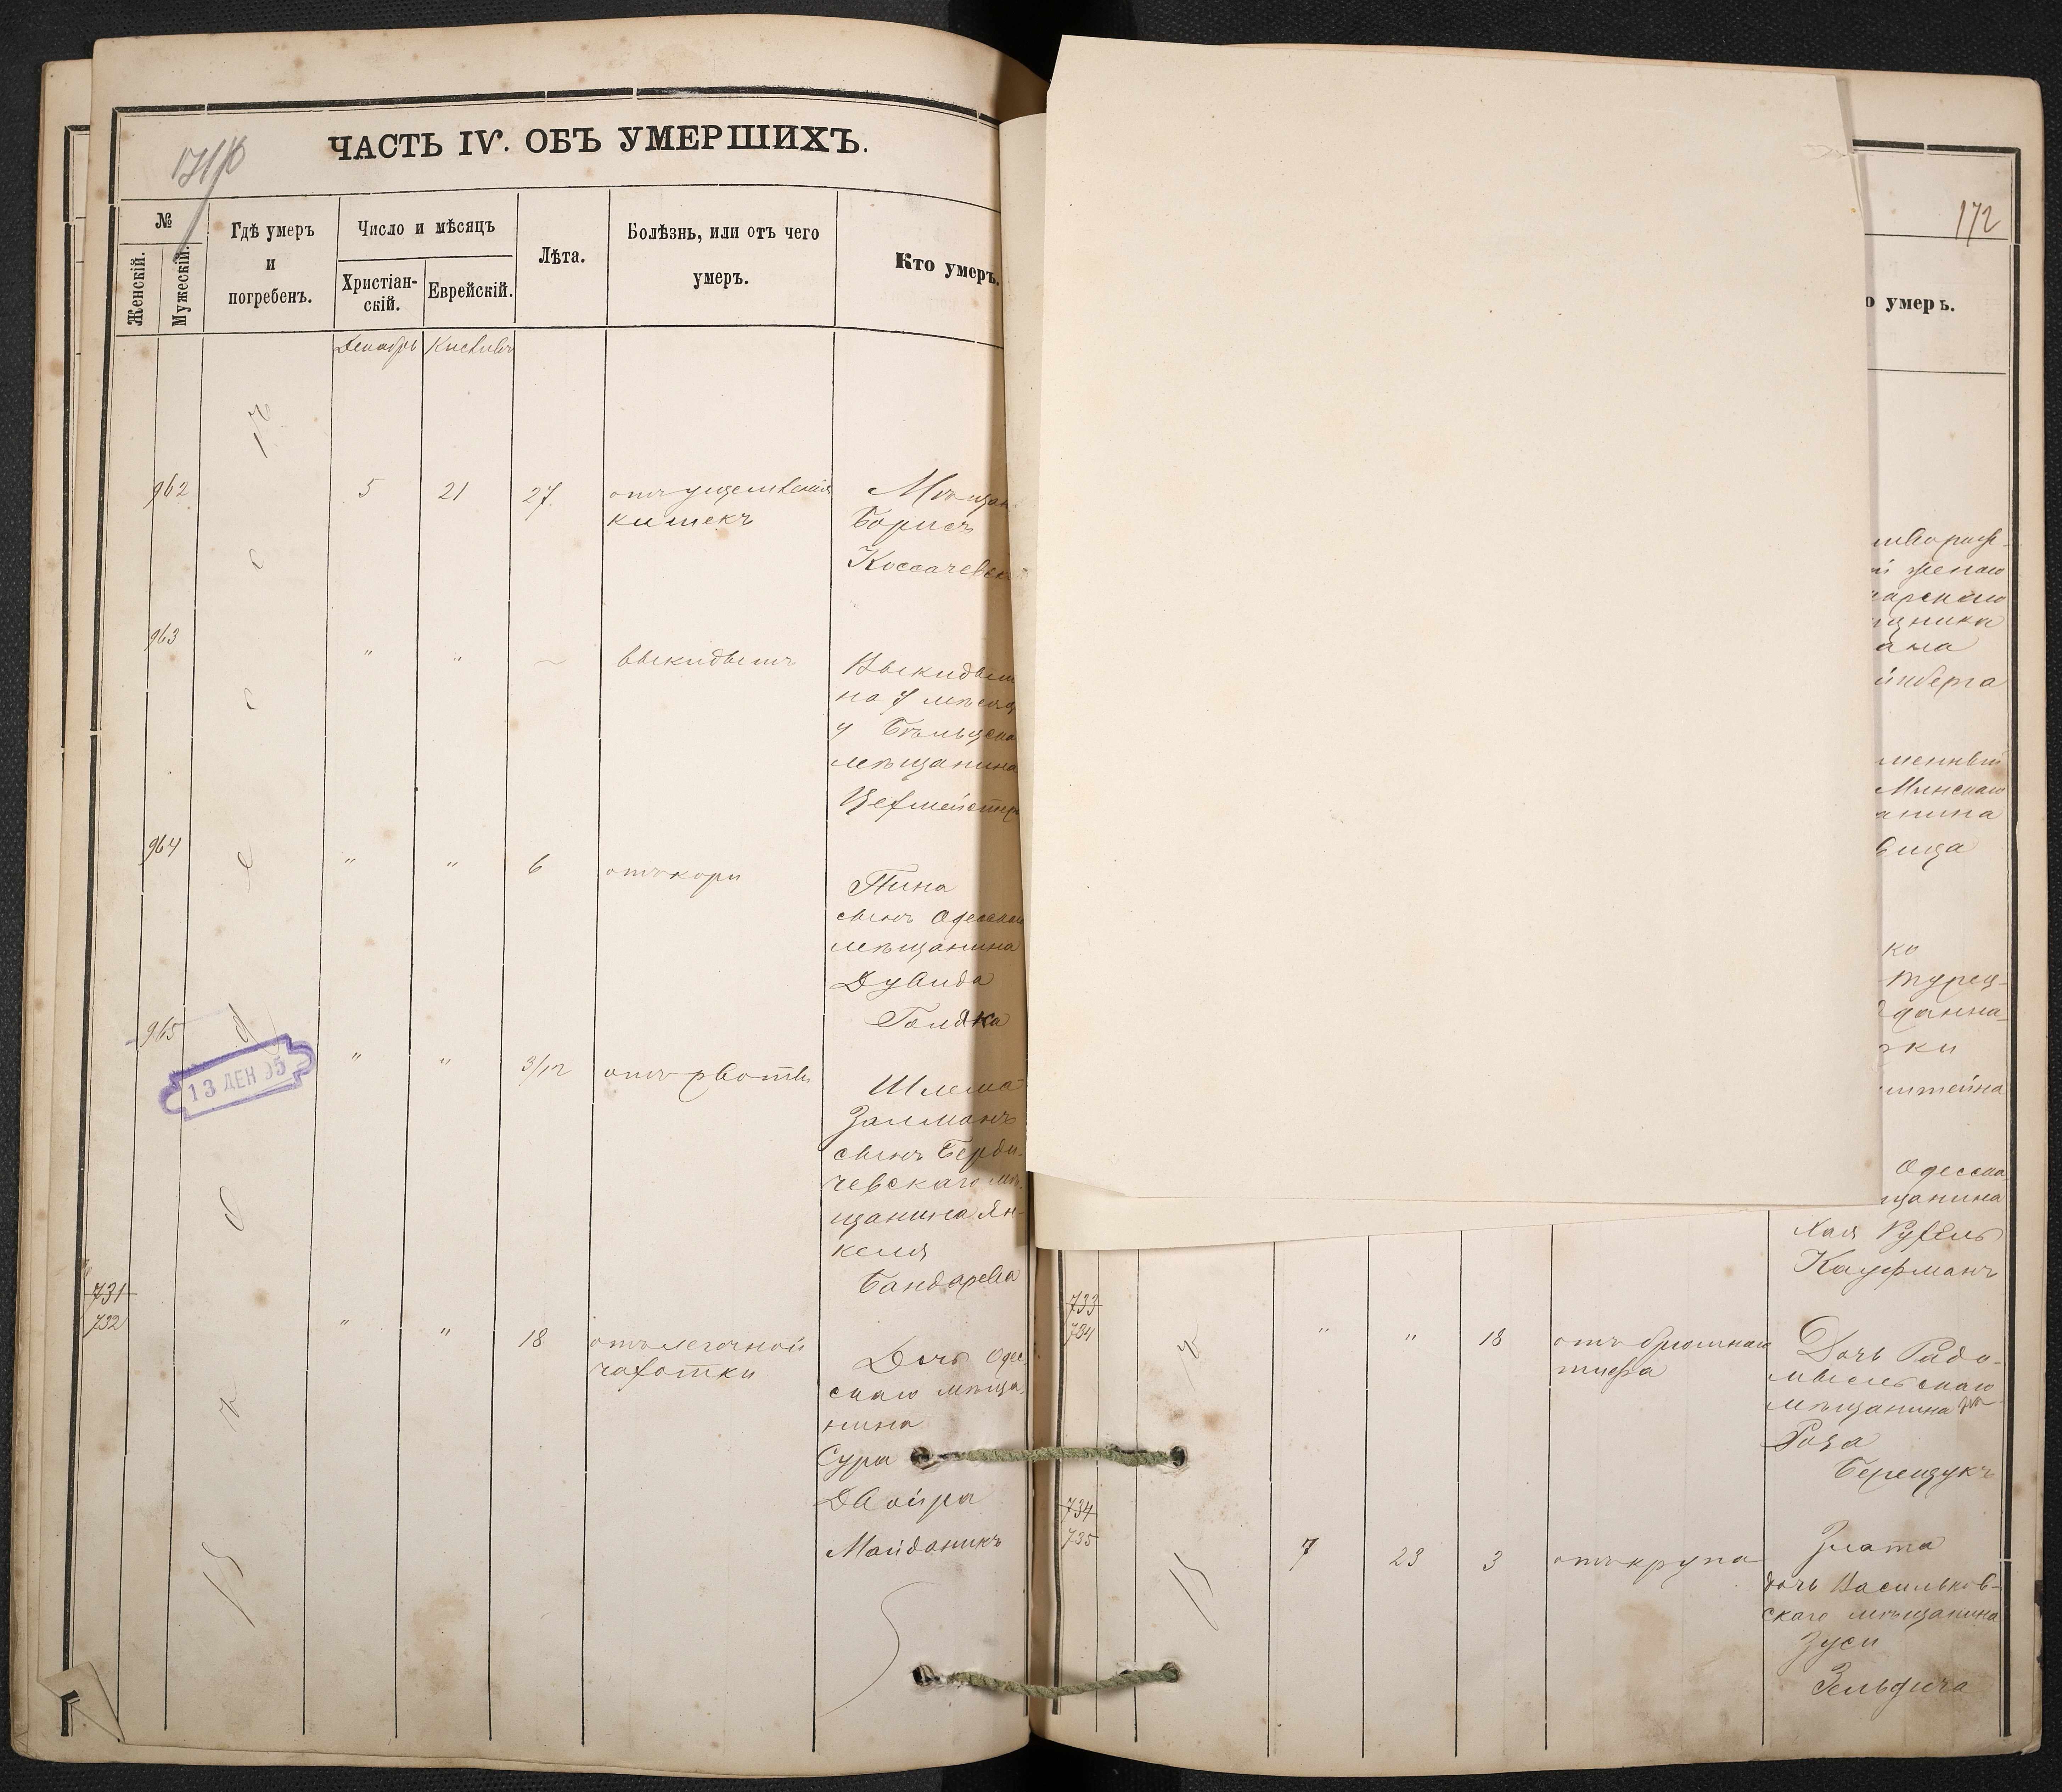 ЧАСТЬ IV. ОБЪ УМЕРШИХЪ.
№
Женскій.
Мужескій.
Гдѣ умеръ
и
погребенъ.
Число и мѣсяцъ
Христіан-
скій.
Еврейскій.
Лѣта.
Болѣзнь, или отъ чего
умеръ.
Кто умеръ.
Декабрь Кислевъ
962 5 21 27 отъ ущемленія
кишекъ
Мѣщан
Борисъ
Коссачевск
963 " " выкидышъ
Выкидыш
на 7 мѣсяц
у Бѣльцска
мѣщанина
Цехмейстр
964 " " 6 отъ кори
Пина
сынъ Одесскаго
мѣщанина
Дувида
Голдка
965 " " 3/12 отъ рвоты
13 ДЕН 95
Шлема-
Залманъ
сынъ Берди-
чевскаго мѣ-
щанина Ян-
келя
Бандарева
731
732 " " 18 отъ легочной
чахотки
Дочь Одес-
скаго мѣща-
нина
Сура
Двойра
Майданикъ
172
о умеръ.
женою
арскаго
щника
ана
йнберга
менный
Минскаго
анина
вица
ко
турец-
данна-
ки
штейна
Одесска
щанина
Хая Рухель
Кауфманъ
733
734 " " 18 отъ брюшнаго
тифа
Дочь Радо-
мысльскаго
мѣщанина
Роза
Берещукъ
734
735 7 23 3 отъ крупа
Злата
дочь Васильков-
скаго мѣщанина
Зуси
Зельфича